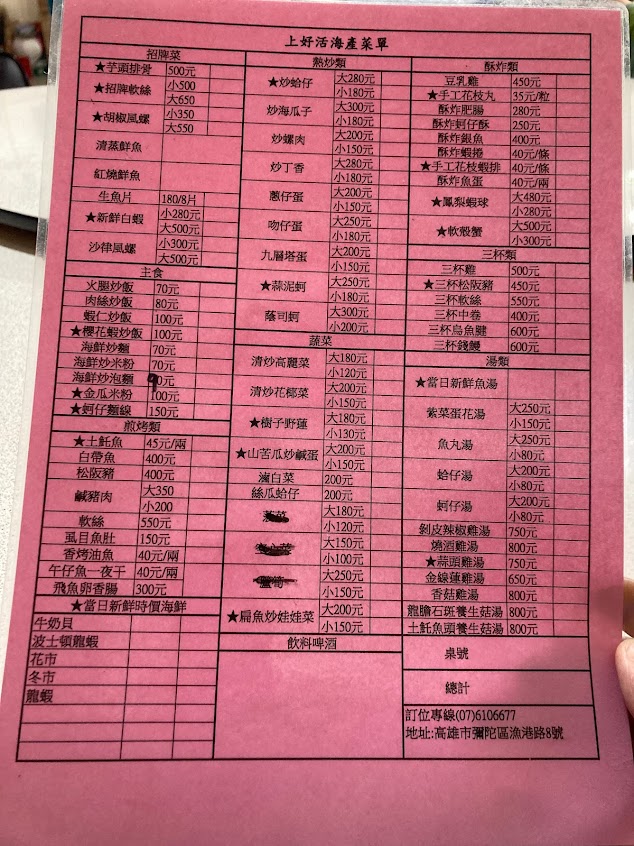 上好活海產菜單
招牌菜
★芋頭排骨 500元
★招牌軟絲 小500
大650
★胡椒風螺 小350
大550
清蒸鮮魚
紅燒鮮魚
生魚片 180/8片
★新鮮白蝦 小280元
大500元
沙律風螺 小300元
大500元
主食
火腿炒飯 70元
肉絲炒飯 80元
蝦仁炒飯 100元
★櫻花蝦炒飯 100元
海鮮炒麵 70元
海鮮炒米粉 70元
海鮮炒泡麵 0元
★金瓜米粉 100元
★蚵仔麵線 150元
煎烤類
★土魠魚 45元/兩
白帶魚 400元
松阪豬 400元
鹹豬肉 大350
小200
軟絲 550元
虱目魚肚 150元
香烤油魚 40元/兩
午仔魚一夜干 40元/兩
飛魚卵香腸 300元
★當日新鮮時價海鮮
牛奶貝
波士頓龍蝦
花市
冬市
龍蝦
熱炒類
★炒蛤仔 大280元
小180元
炒海瓜子 大300元
小180元
炒螺肉 大200元
小150元
炒丁香 大280元
小180元
蔥仔蛋 大200元
小150元
吻仔蛋 大250元
小180元
九層塔蛋 大200元
小150元
★蒜泥蚵 大250元
小180元
蔭司蚵 大300元
小200元
蔬菜
清炒高麗菜 大180元
小120元
清炒花椰菜 大200元
小150元
★樹子野蓮 大180元
小130元
★山苦瓜炒鹹蛋 大200元
小150元
滷白菜 200元
絲瓜蛤仔 200元
大180元
小120元
大150元
小100元
大250元
小150元
★扁魚炒娃娃菜 大200元
小150元
飲料啤酒
酥炸類
豆乳雞 450元
★手工花枝丸 35元/粒
酥炸肥腸 280元
酥炸蚵仔酥 250元
酥炸銀魚 400元
酥炸蝦捲 40元/條
★手工花枝蝦排 40元/條
酥炸魚蛋 40元/兩
★鳳梨蝦球 大480元
小280元
★軟殼蟹 大500元
小300元
三杯類
三杯雞 500元
★三杯松阪豬 450元
三杯軟絲 550元
三杯中卷 400元
三杯烏魚腱 600元
三杯錢鰻 600元
湯類
★當日新鮮魚湯
紫菜蛋花湯 大250元
小150元
魚丸湯 大250元
小80元
蛤仔湯 大200元
小80元
蚵仔湯 大200元
小80元
剝皮辣椒雞湯 750元
燒酒雞湯 800元
★蒜頭雞湯 750元
金線蓮雞湯 650元
香菇雞湯 800元
龍膽石斑養生菇湯 800元
土魠魚頭養生菇湯 800元
桌號
總計
訂位專線(07)6106677
地址:高雄市彌陀區漁港路8號